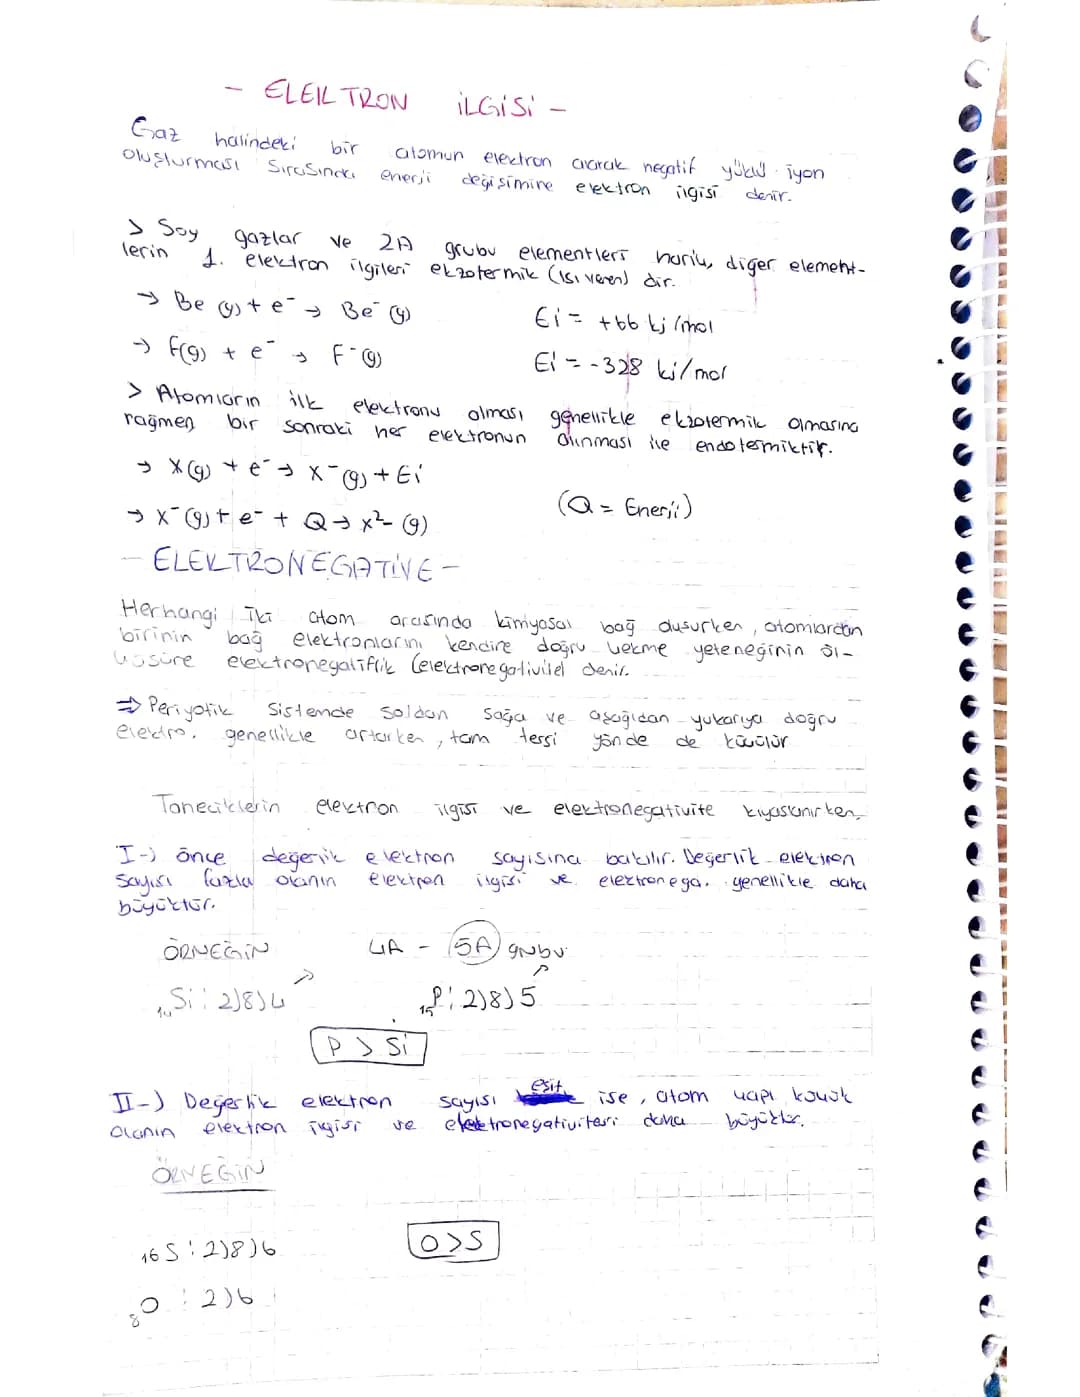 - ELEKTRON İLGİSİ -
Gaz halindeki bir atomun elektron alarak negatif yüklü iyon
oluşturması sırasındaki enerji değişimine elektron ilgisi denir.
> Soy gazlar ve 2A grubu elementleri hariç, diğer element-
lerin 1. elektron ilgileri ekzotermik (ısı veren) dir.
→ Be (g) + e⁻ → Be⁻ (g) Ei = +66 kj/mol
→ F(g) + e⁻ → F⁻(g) Ei = -328 kj/mol
> Atomların ilk elektronu alması genellikle ekzotermik olmasına
rağmen bir sonraki her elektronun alınması ise endotermiktir.
→ X(g) + e⁻ → X⁻(g) + Ei
→ X⁻(g) + e⁻ + Q → X²⁻ (g) (Q = Enerji)
- ELEKTRONEGATİVE -
Herhangi iki atom arasında kimyasal bağ oluşurken, atomlardan
birinin bağ elektronlarını kendine doğru çekme yeteneğinin öl-
üssüre elektronegatiflik (elektronegativite) denir.
⇒ Periyotik sistemde soldan sağa ve aşağıdan yukarıya doğru
elektro. genellikle artarken, tam tersi yönde de küçülür
Taneciklerin elektron ilgisi ve elektronegativite kıyaslanırken,
I-) önce değerlik elektron sayısına bakılır. Değerlik elektron
sayısı fazla olanın elektron ilgisi ve elektronega. genellikle daha
büyüktür.
ÖRNEĞİN 4A - 5A grubu
₁₄Si : 2)8)4 ₁₅P : 2)8)5
P > Si
II-) Değerlik elektron sayısı eşit ise, atom çapı küçük
olanın elektron ilgisi ve elektronegativitesi daha büyüktür.
ÖRNEĞİN
₁₆S : 2)8)6 O>S
₈O : 2)6